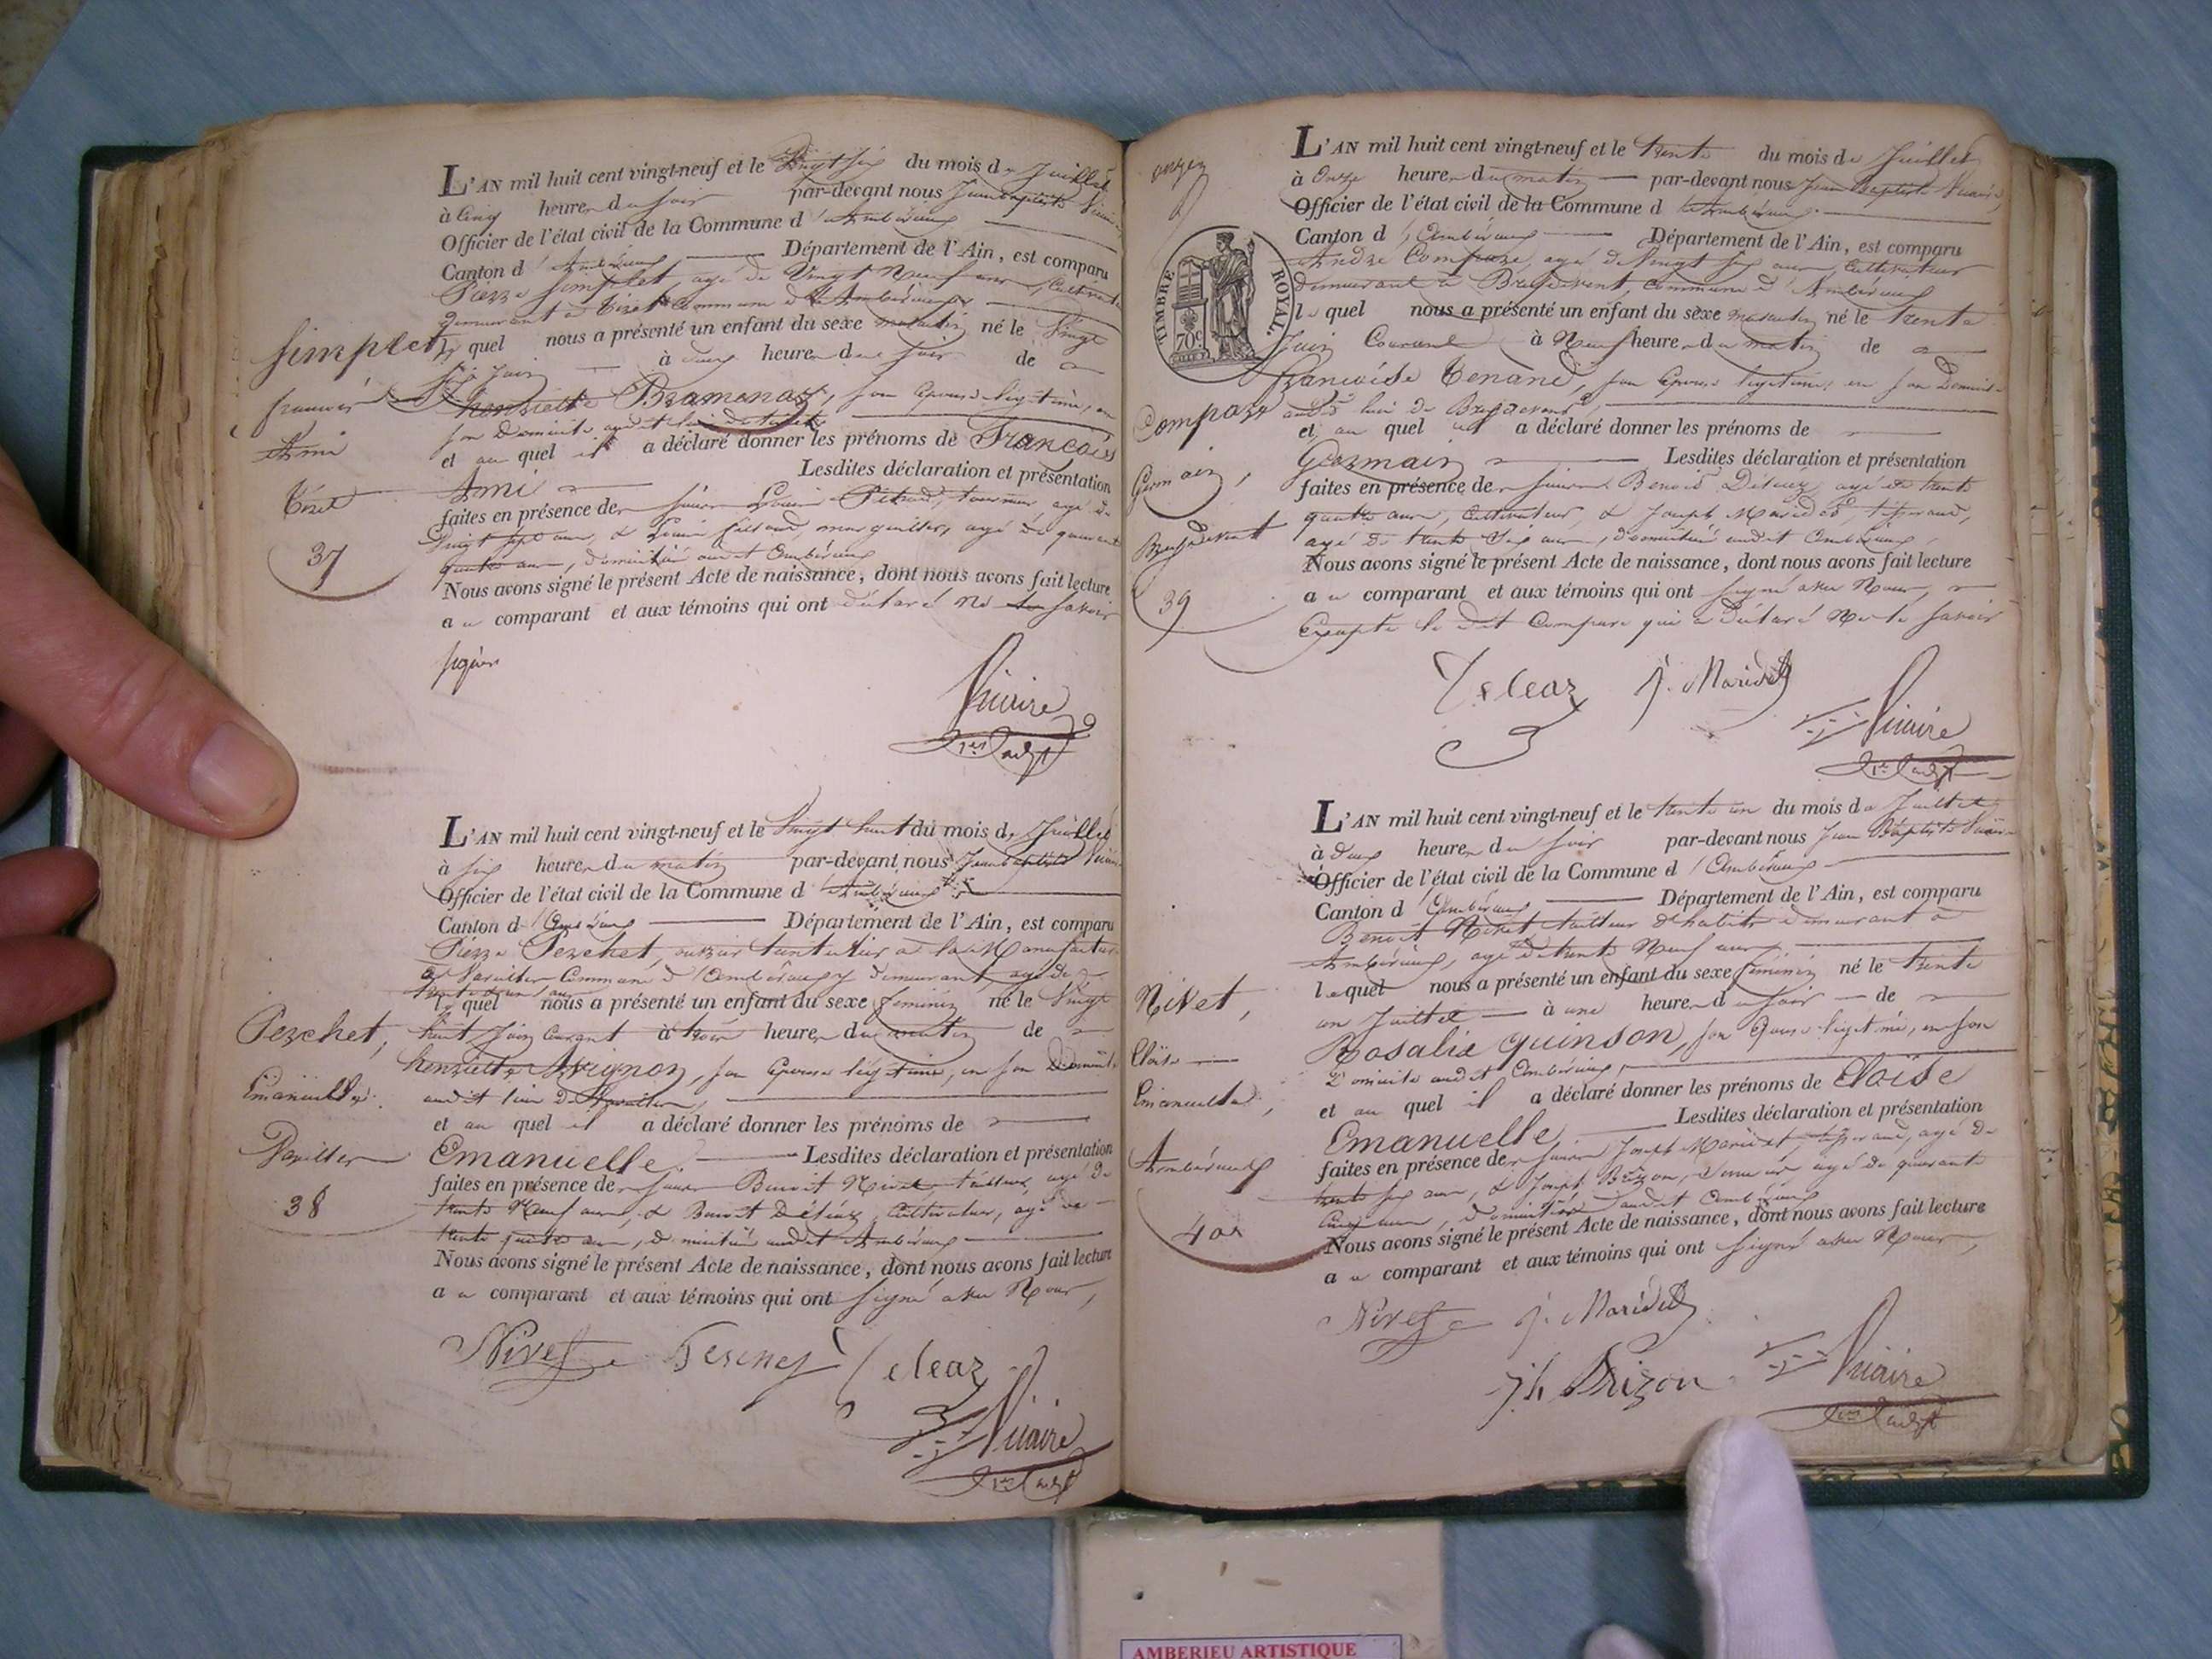 L'AN mil huit cent vingt-neuf et le Vingt six du mois de Juillet
à Cinq heures du soir par-devant nous Jean baptiste Vicaire
Officier de l'état civil de la Commune d'Ambérieux
Canton d'Ambérieux Département de l'Ain, est comparu
Pierre Simplet agé de Vingt Neuf ans, Cultivateur
demeurant à Tiret Commune d'Ambérieux
lequel nous a présenté un enfant du sexe masculin né le Vingt
six Juin à deux heures du soir de
henriette Bramenas, son épouse légitime, en
son Domicile audit lieu de Tiret
et au quel il a déclaré donner les prénoms de François
Ami Lesdites déclaration et présentation
faites en présence des sieurs Louis tourneur, agé de
Vingt sept ans, & Louis marguiller, agé de quarante
quatre ans, domiciliés audit Ambérieux
Nous avons signé le présent Acte de naissance, dont nous avons fait lecture
au comparant et aux témoins qui ont déclaré ne savoir
signer
Vicaire
Simplet
françois
Ami
Tiret
37
L'AN mil huit cent vingt-neuf et le Vingt huit du mois de Juillet
à six heures du matin par-devant nous Jean baptiste Vicaire
Officier de l'état civil de la Commune d'Ambérieux
Canton d'Ambérieux Département de l'Ain, est comparu
Pierre Perchet, ouvrier à la Manufacture
de Vareilles Commune d'Ambérieux y demeurant, agé de
trente un ans
lequel nous a présenté un enfant du sexe féminin né le Vingt
huit Juin Courant à trois heures du matin de
henriette Avignon, son épouse légitime, en son Domicile
audit lieu de Vareilles,
et au quel il a déclaré donner les prénoms de
Emanuelle. Lesdites déclaration et présentation
faites en présence des sieurs Benoit Nivet, tailleur, agé de
trente Neuf ans, & Benoit Déléaz, Cultivateur, agé de
trente quatre ans, domiciliés audit Ambérieux
Nous avons signé le présent Acte de naissance, dont nous avons fait lecture
au comparant et aux témoins qui ont signé avec Nous,
Nivet Perchet Deleaz
Vicaire
Perchet,
Emanuelle
Vareilles
38
onzen
TIMBRE ROYAL.
70c
L'AN mil huit cent vingt-neuf et le trente du mois de Juillet
à Onze heures du matin par-devant nous Jean Baptiste Vicaire,
Officier de l'état civil de la Commune d'Ambérieux
Canton d'Ambérieux Département de l'Ain, est comparu
André Compare, agé de Vingt six ans, Cultivateur
demeurant à Breydevent, Commune d'Ambérieux
lequel nous a présenté un enfant du sexe masculin né le trente
Juin Courant à Neuf heures du matin de
françoise Tenand, son épouse légitime, en son Domicile
audit lieu de Breydevent,
et au quel il a déclaré donner les prénoms de
Germain Lesdites déclaration et présentation
faites en présence des sieurs Benoit Déléaz agé de trente
quatre ans, Cultivateur, & Joseph Maridet, tisserand,
agé de trente six ans, domiciliés audit Ambérieux,
Nous avons signé le présent Acte de naissance, dont nous avons fait lecture
au comparant et aux témoins qui ont signé avec Nous,
Excepté le dit Compare qui a déclaré Ne le savoir
Deleaz J. Maridet
Vicaire
Compare
Germain,
Breydevent
39
L'AN mil huit cent vingt-neuf et le trente un du mois de Juillet
à deux heures du soir par-devant nous Jean Baptiste Vicaire
Officier de l'état civil de la Commune d'Ambérieux
Canton d'Ambérieux Département de l'Ain, est comparu
Benoit Nivet tailleur d'habits demeurant à
Ambérieux, agé de trente Neuf ans,
lequel nous a présenté un enfant du sexe féminin né le trente
un Juillet à une heures du soir de
Rosalie Quinson, son épouse légitime, en son
Domicile audit Ambérieux,
et au quel il a déclaré donner les prénoms de Eloïse
Emanuelle Lesdites déclaration et présentation
faites en présence des sieurs Joseph Maridet, tisserand, agé de
trente six ans, & Joseph Brizon, agé de quarante
Cinq ans, domiciliés audit Ambérieux
Nous avons signé le présent Acte de naissance, dont nous avons fait lecture
au comparant et aux témoins qui ont signé avec Nous,
Nivet J. Maridet
Jh Brizon Vicaire
Nivet,
Eloïse
Emanuelle,
Ambérieux
40
AMBERIEU ARTISTIQUE